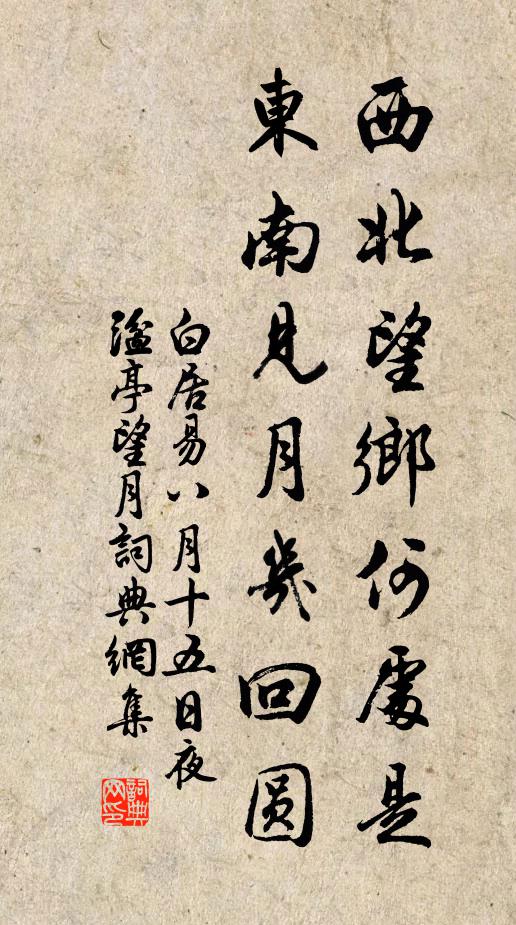 西北望鄉何處是
東南見月幾回圓
白居易八月十五日夜
湓亭望月詞典網集
詞典网印